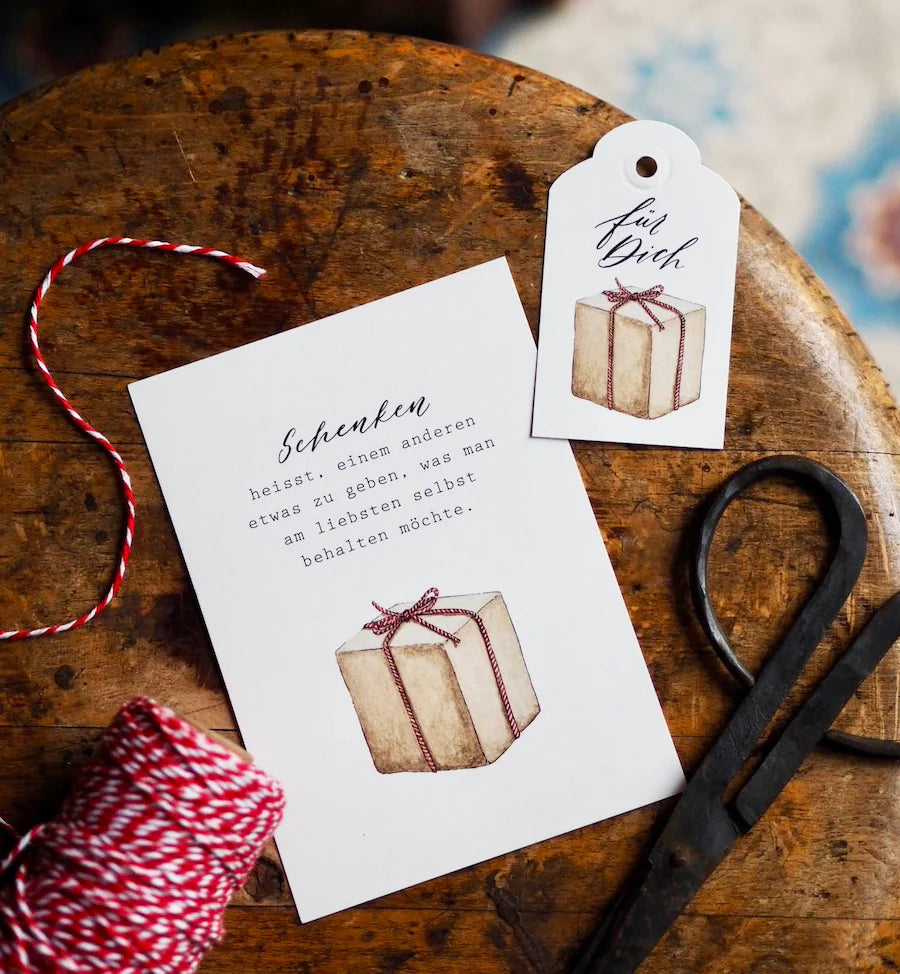 für
Dich
Schenken
heisst, einem anderen
etwas zu geben, was man
am liebsten selbst
behalten möchte.